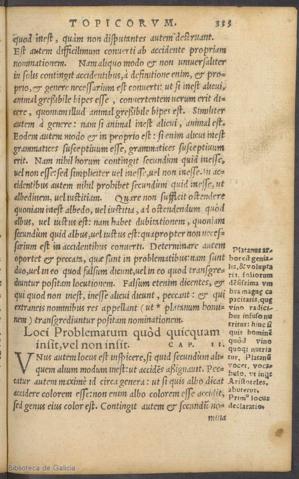 TOPICORVM. 335
quod inest, quàm non disputantes autem destruant.
Est autem difficilimum converti ab accidente propriam
nominationem. Nam aliquo modo & non universaliter
in solis contingit accidentibus, à definitione enim, & pro-
prio, & genere necessarium est converti: ut si inest alicui,
animal gresibile bipes esse, convertentem verum erit di-
cere, quoniam illud animal gresibile bipes est. Similiter
autem à genere: nam si animal inest alicui, animal est.
Eodem autem modo & in proprio est: si enim alicui inest
grammatices susceptivum esse, grammatices susceptivum
erit. Nam nihil horum contingit secundùm quid inesse,
vel non esse: sed simpliciter vel inesse, vel non inesse. In ac-
cidentibus autem nihil prohibet secundùm quid inesse, ut
albedinem, vel iustitiam. Quare non sufficit ostendere
quoniam inest albedo, vel iustitia, ad ostendendum quòd
albus, vel iustus est: nam habet dubitationem, quoniam
secundùm quid albus, vel iustus est: quapropter non neces-
sarium est in accidentibus converti. Determinare autem
oportet & peccata, quæ sunt in problematibus: nam sunt
duo, vel in eo quòd falsum dicunt, vel in eo quòd transgre-
diuntur positam locutionem. Falsum etenim dicentes, &
qui quod non inest, inesse alicui dicunt, peccant: & qui
extraneis nominibus res appellant (ut platanum homi-
nem) transgrediuntur positam nominationem.
Loci Problematum quòd quicquam
insit, vel non insit. CAP. II.
VNus autem locus est inspicere, si quid secundùm ali-
quem alium modum inest: ut accidēs assignavit. Pec-
catur autem maximè id circa genera: ut si quis albo dicat
accidere colorem esse: non enim albo colorem esse accidit,
sed genus eius color est. Contingit autem & secundū no-
mina
Platanus ar-
bor est
& volupta
foliorum
vino
quòd
homini
quis
Platanū
vocet,
Aristoteles,
Prim° locus
declaratio.
Biblioteca de Galicia